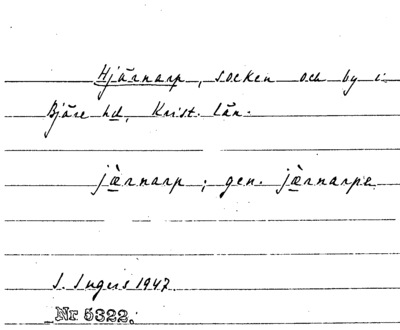 Hjärnarp, socken och by i
Bjäre hd, Krist. län.
jæ̀rnarp ; gen. jæ̀rnarpa
I. Ingers 1947.
Nr 5322.